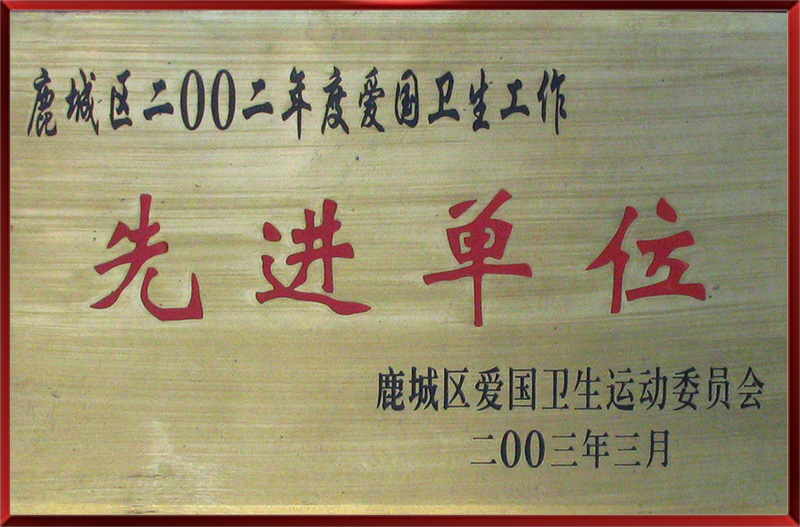 鹿城区二00二年度爱国卫生工作
先进单位
鹿城区爱国卫生运动委员会
二00三年三月